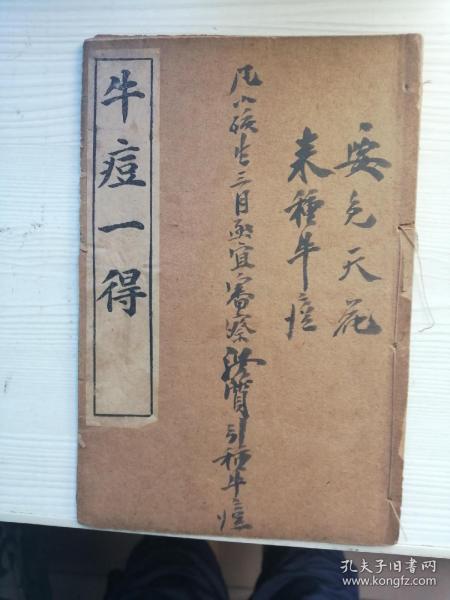 牛痘一得
要免天花
来種牛痘
凡小孩生三月亟宜審察體質引種牛痘
孔夫子旧书网
www.kongfz.com